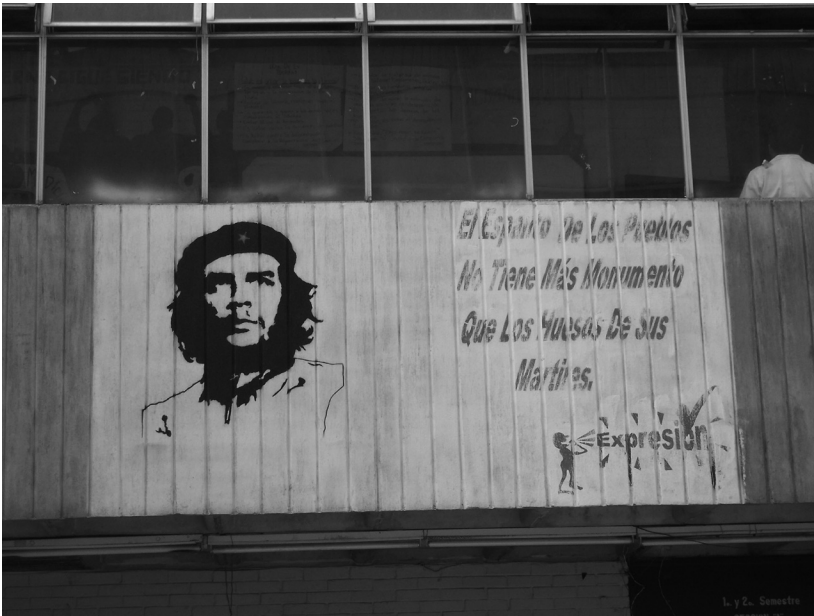 El Espíritu De Los Pueblos
No Tiene Más Monumento
Que Los Huesos De Sus
Mártires.
Expresión
1.. y 2.. Semestre